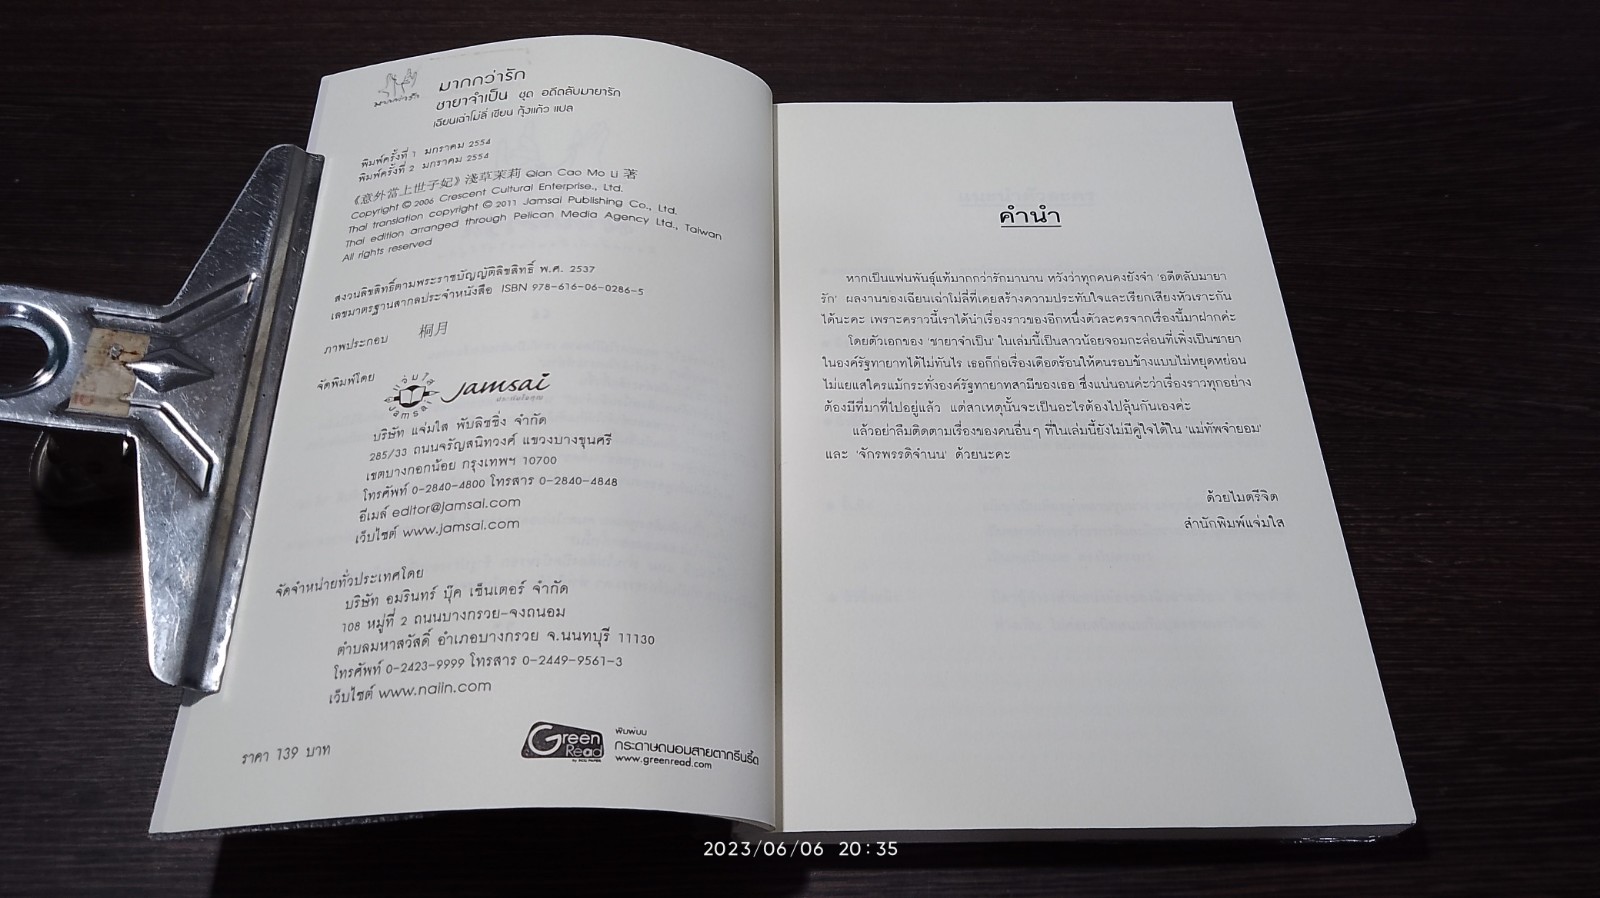 มากกว่ารัก
มากกว่ารัก
ชายาจำเป็น ชุด อดีตลับมายารัก
เฉียนเฉ่าโม่ลี่ เขียน กุ้งแก้ว แปล
พิมพ์ครั้งที่ 1 มกราคม 2554
พิมพ์ครั้งที่ 2 มกราคม 2554
《意外當上世子妃》淺草茉莉 Qian Cao Mo Li 著
Copyright © 2006 Crescent Cultural Enterprise., Ltd.
Thai translation copyright © 2011 Jamsai Publishing Co., Ltd.
Thai edition arranged through Pelican Media Agency Ltd., Taiwan
All rights reserved
สงวนลิขสิทธิ์ตามพระราชบัญญัติลิขสิทธิ์ พ.ศ. 2537
เลขมาตรฐานสากลประจำหนังสือ ISBN 978-616-06-0286-5
ภาพประกอบ 桐月
จัดพิมพ์โดย
Jamsai
บริษัท แจ่มใส พับลิชชิ่ง จำกัด
285/33 ถนนจรัญสนิทวงศ์ แขวงบางขุนศรี
เขตบางกอกน้อย กรุงเทพฯ 10700
โทรศัพท์ 0-2840-4800 โทรสาร 0-2840-4848
อีเมล์ editor@jamsai.com
เว็บไซต์ www.jamsai.com
จัดจำหน่ายทั่วประเทศโดย
บริษัท อมรินทร์ บุ๊ค เซ็นเตอร์ จำกัด
108 หมู่ที่ 2 ถนนบางกรวย-จงถนอม
ตำบลมหาสวัสดิ์ อำเภอบางกรวย จ.นนทบุรี 11130
โทรศัพท์ 0-2423-9999 โทรสาร 0-2449-9561-3
เว็บไซต์ www.naiin.com
ราคา 139 บาท
Green Read
พิมพ์บน
กระดาษถนอมสายตากรีนรี้ด
www.greenread.com
คำนำ
หากเป็นแฟนพันธุ์แท้มากกว่ารักมานาน หวังว่าทุกคนคงยังจำ 'อดีตลับมายา
รัก' ผลงานของเฉียนเฉ่าโม่ลี่ที่เคยสร้างความประทับใจและเรียกเสียงหัวเราะกัน
ได้นะคะ เพราะคราวนี้เราได้นำเรื่องราวของอีกหนึ่งตัวละครจากเรื่องนี้มาฝากค่ะ
โดยตัวเอกของ 'ชายาจำเป็น' ในเล่มนี้เป็นสาวน้อยจอมกะล่อนที่เพิ่งเป็นชายา
ในองค์รัฐทายาทได้ไม่ทันไร เธอก็ก่อเรื่องเดือดร้อนให้คนรอบข้างแบบไม่หยุดหย่อน
ไม่แยแสใครแม้กระทั่งองค์รัฐทายาทสามีของเธอ ซึ่งแน่นอนค่ะว่าเรื่องราวทุกอย่าง
ต้องมีที่มาที่ไปอยู่แล้ว แต่สาเหตุนั้นจะเป็นอะไรต้องไปลุ้นกันเองค่ะ
แล้วอย่าลืมติดตามเรื่องของคนอื่นๆ ที่ในเล่มนี้ยังไม่มีคู่ใจได้ใน 'แม่ทัพจำยอม'
และ 'จักรพรรดิจำนน' ด้วยนะคะ
ด้วยไมตรีจิต
สำนักพิมพ์แจ่มใส
2023/06/06 20:35